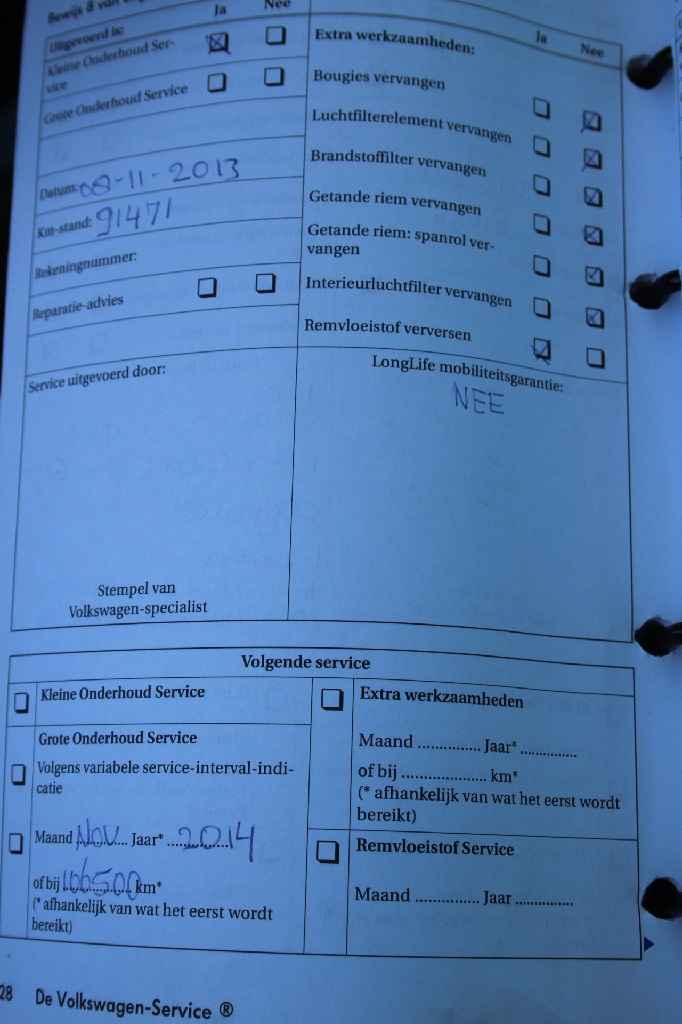 Bewijs 8 van
Uitgevoerd is:
Ja
Nee
Kleine Onderhoud Ser-
vice
Grote Onderhoud Service
Datum: 08-11-2013
Km-stand: 91471
Rekeningnummer:
Reparatie-advies
Service uitgevoerd door:
Stempel van
Volkswagen-specialist
Extra werkzaamheden:
Ja
Nee
Bougies vervangen
Luchtfilterelement vervangen
Brandstoffilter vervangen
Getande riem vervangen
Getande riem: spanrol ver-
vangen
Interieurluchtfilter vervangen
Remvloeistof verversen
LongLife mobiliteitsgarantie:
NEE
Volgende service
Kleine Onderhoud Service
Grote Onderhoud Service
Volgens variabele service-interval-indi-
catie
Maand NOV Jaar* 2014
of bij 106500 km*
(* afhankelijk van wat het eerst wordt
bereikt)
Extra werkzaamheden
Maand ............... Jaar* ..............
of bij ..................... km*
(* afhankelijk van wat het eerst wordt
bereikt)
Remvloeistof Service
Maand ............... Jaar ..............
28 De Volkswagen-Service ®